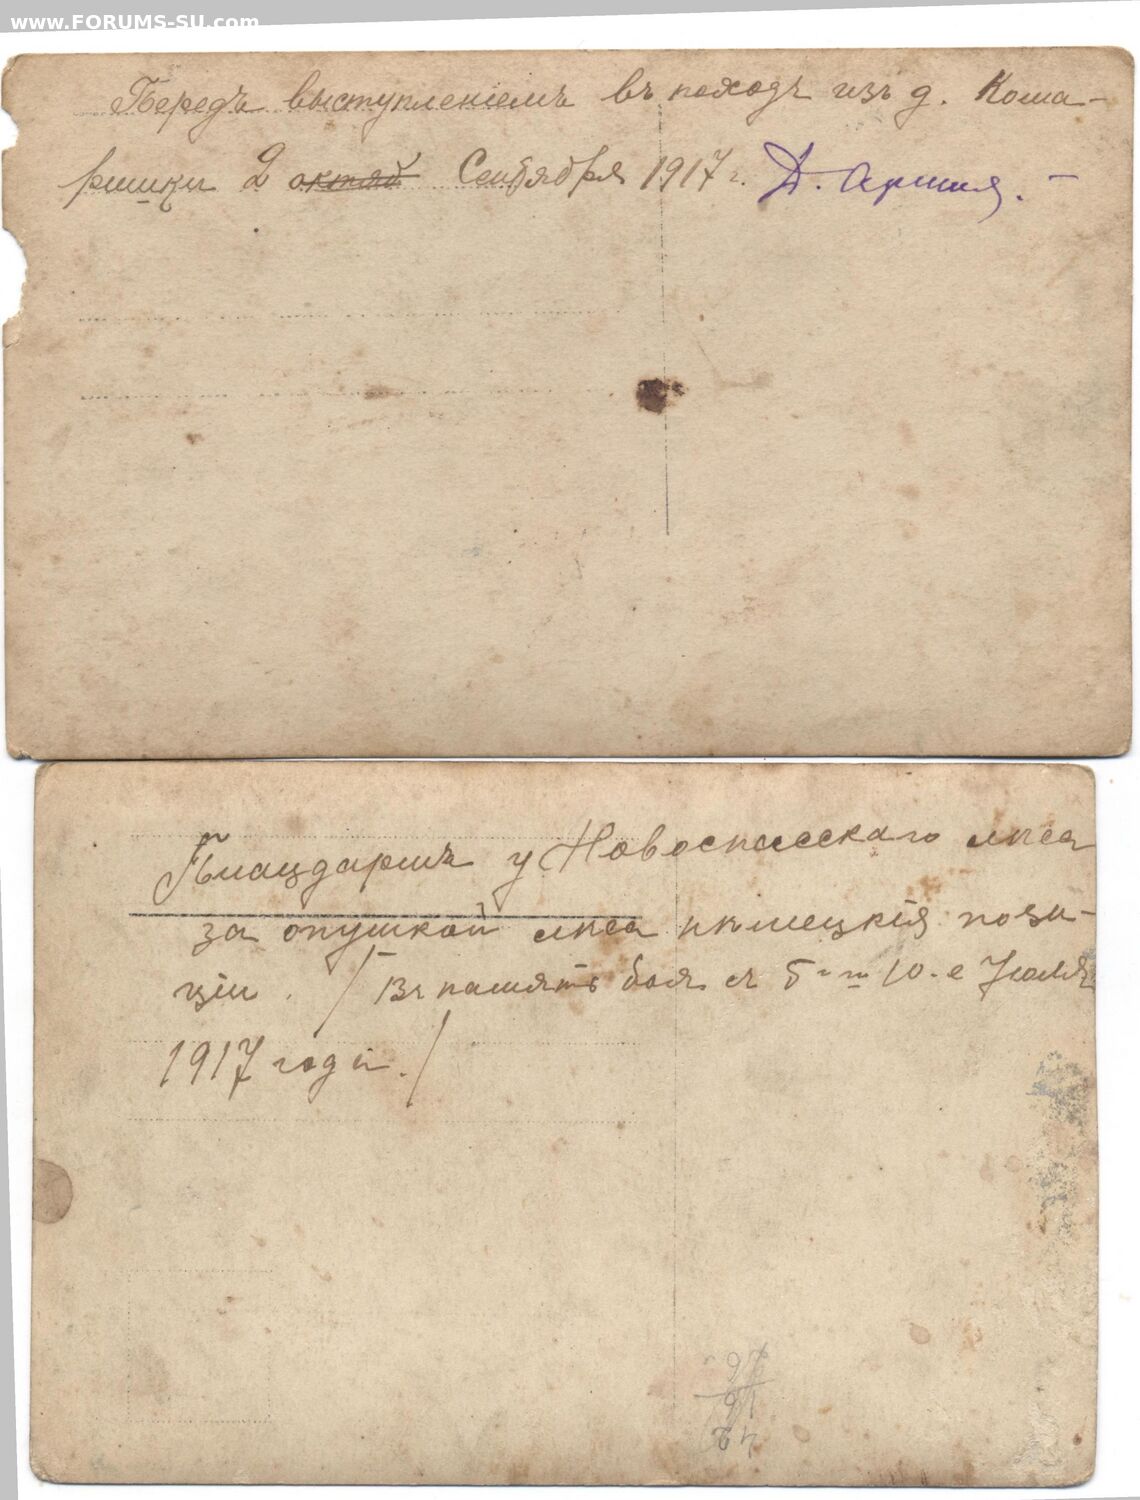 www.FORUMS-SU.com
Передъ выступленіемъ въ походъ изъ д. Кома-
ришки 2 октяб Сентября 1917 г. Д. Армия. –
Плацдармъ у Новоспасскаго лѣса
за опушкой лѣса нѣмецкія пози-
ціи. / Въ память боя съ 5 го по 10-е Іюля
1917 года. /